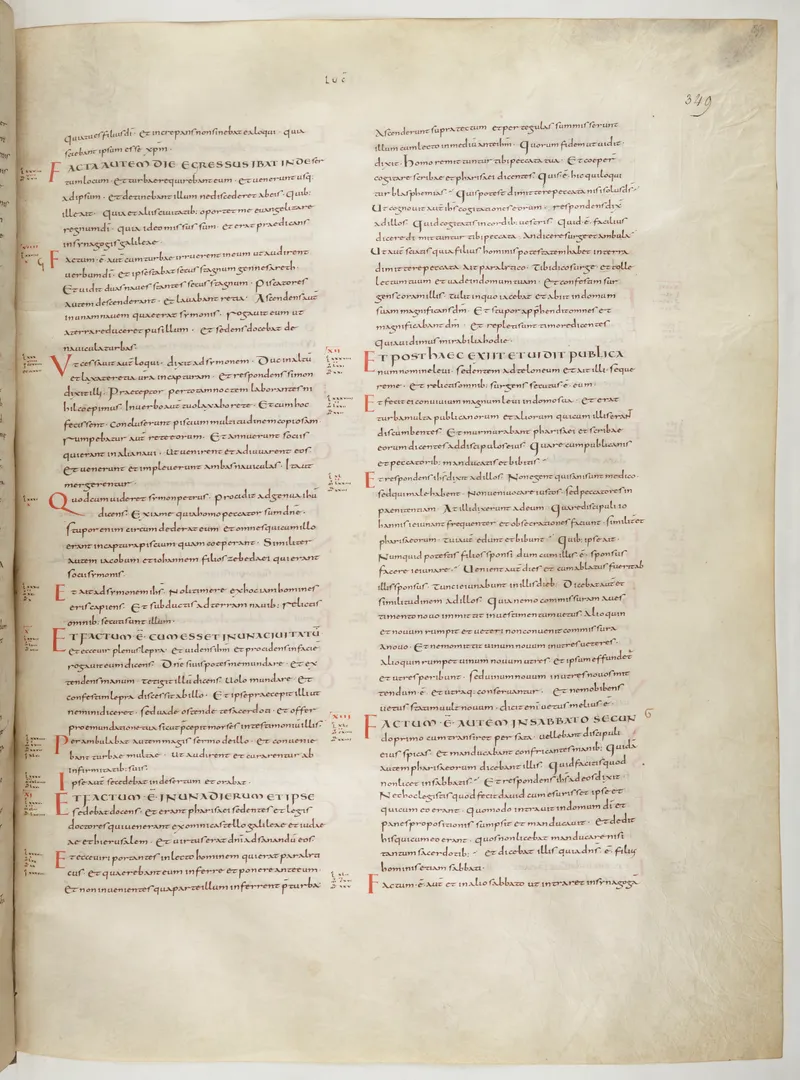 LUC
349
quia tu es filius di · Et increpans non sinebat ea loqui · quia
sciebant ipsum esse xpm ·
FACTA AUTEM DIE EGRESSUS IBAT IN deser
tum locum · Et turbae requirebant eum · et uenerunt usq
ad ipsum · et detinebant illum ne discederet ab eis · Quib:
ille ait · Quia et aliis ciuitatib: oportet me euangelizare
regnum di · quia ideo missus sum · Et erat praedicans
in synagogis galileae ·
Factum · ē · aut cum turbae irruerent in eum ut audirent
uerbum di · et ipse stabat secus stagnum gennesareth ·
Et uidit duas naues stantes secus stagnum · Piscatores
autem descenderant · et lauabant retia · Ascendens aut
in unam nauem quae erat symonis · rogauit eum ut
a terra reduceret pusillum · et sedens docebat de
nauicula turbas ·
Ut cessauit aut loqui · dixit ad symonem · Duc in altū
et laxate retia ura in capturam · Et respondens simon
dixit illi · Praeceptor per totam noctem laborantes ni
hil coepimus · In uerbo aut tuo laxabo rete · Et cum hoc
fecissent · concluserunt piscium multitudinem copiosam
rumpebatur aut rete eorum · Et annuerunt sociis
qui erant in alia naui · ut uenirent et adiuuarent eos
Et uenerunt et impleuerunt ambas nauiculas · Ita ut
mergerentur ·
Quod cum uideret symon petrus · procidit ad genua ihu
dicens · Exi a me quia homo peccator sum dne ·
Stupor enim circum dederat eum et omnes qui cum illo
erant in captura piscium quam coeperant · Similiter
autem iacobum et iohannem filios zebedaei qui erant
socii symonis ·
Et ait ad symonem ihs · Noli timere ex hoc iam homines
eris capiens · Et subductis ad terram nauib: relictis
omnib: secuti sunt illum ·
ET FACTUM · Ē · CUM ESSET IN UNA CIUITATU
et ecce uir plenus lepra · et uidens ihm et procidens in faciē
rogauit eum dicens · Dne si uis potes me mundare · Et ex
tendens manum · tetigit illū dicens · Uolo mundare · Et
confestim lepra discessit ab illo · Et ipse praecepit illi ut
nemini diceret · sed uade ostende te sacerdoti · et offer
pro emundatione tua sicut praecepit moyses in testimoniū illis
Perambulabat autem magis sermo de illo · et conuenie
bant turbae multae · ut audirent et curarentur ab
infirmitatib: suis ·
Ipse aut secedebat in desertum et orabat ·
ET FACTUM · Ē · IN UNA DIERUM ET IPSE
sedebat docens · Et erant pharisaei sedentes et legis
doctores qui uenerant ex omni castello galileae et iudae
ae et hierusalem · Et uirtus erat dni ad sanandū eos ·
Et ecce uiri portantes in lecto hominem qui erat paraliti
cus · et quaerebant eum inferre et ponere ante eum ·
Et non inuenientes qua parte illum inferrent prae turba
Ascenderunt supra tectum et per tegulas summiserunt
illum cum lecto in mediū ante ihm · Quorum fidem ut uidit
dixit · homo remittuntur tibi peccata tua · Et coeperunt
cogitare scribae et pharisaei dicentes · Quis · ē · hic qui loqui
tur blasphemias · Quis potest dimittere peccata nisi solus ds ·
Ut cognouit aut ihs cogitationes eorum · respondens dix
ad illos · Quid cogitatis in cordib: uestris · Quid · ē · facilius
dicere dimittuntur tibi peccata · An dicere surge et ambula ·
Ut aut sciatis quia filius hominis potestatem habet in terra
dimittere peccata · Ait paralitico · Tibi dico surge · et tolle
lectum tuum et uade in domum tuam · Et confestim sur
gens coram illis · tulit in quo iacebat et abiit in domum
suam magnificans dm · Et stupor apprehendit omnes et
magnificabant dm · et repleti sunt timore dicentes
quia uidimus mirabilia hodie ·
ET POST HAEC EXIIT ET UIDIT PUBLICA
num nomine leui · sedentem ad teloneum et ait illi · seque
re me · et relictis omnib: surgens secutus · ē · eum ·
Et fecit ei conuiuium magnum leui in domo sua · Et erat
turba multa publicanorum et aliorum qui cum illis erant
discumbentes · Et murmurabant pharisaei et scribae
eorum dicentes ad discipulos eius · Quare cum publicanis
et peccatorib: manducatis et bibitis ·
Et respondens ihs dixit ad illos · Non egent qui sani sunt medico ·
sed qui male habent · Non ueni uocare iustos · sed peccatores in
paenitentiam · At illi dixerunt ad eum · Quare discipuli io
hannis ieiunant frequenter · et obsecrationes faciunt · similiter
pharisaeorum · Tui aut edunt et bibunt · Quib: ipse ait ·
Numquid potestis filios sponsi dum cum illis · ē · sponsus
facere ieiunare · Uenient aut dies et cum ablatus fuerit ab
illis sponsus · tunc ieiunabunt in illis dieb: Dicebat aut et
similitudinem ad illos · Quia nemo commissuram a uesti
mento nouo inmittit in uestimentum uetus · Alioquin
et nouum rumpit et ueteri non conuenit commissura
a nouo · Et nemo mittit uinum nouum in utres ueteres ·
Alioquin rumpet uinum nouum utres · et ipsum effundet
et utres peribunt · sed uinum nouum in utres nouos mit
tendum · ē · et utraq: conseruantur · Et nemo bibens
uetus statim uult nouum · dicit eni uetus melius · ē ·
FACTUM · Ē · AUTEM IN SABBATO SECUN
do primo cum transiret per sata · uellebant discipuli
eius spicas · et manducabant confricantes manib: Quidā
autem pharisaeorum dicebant illis · Quid facitis quod
non licet in sabbatis · Et respondens ihs ad eos dixit ·
Nec hoc legistis quod fecit dauid cum esurisset ipse et
qui cum eo erant · quomodo intrauit in domum di et
panes propositionis sumpsit et manducauit · et dedit
his qui cum eo erant · quos non licebat manducare nisi
tantum sacerdotib: · et dicebat illis quia dns · ē · filius
hominis etiam sabbati ·
Factum · ē · aut et in alio sabbato ut intraret in synagogā